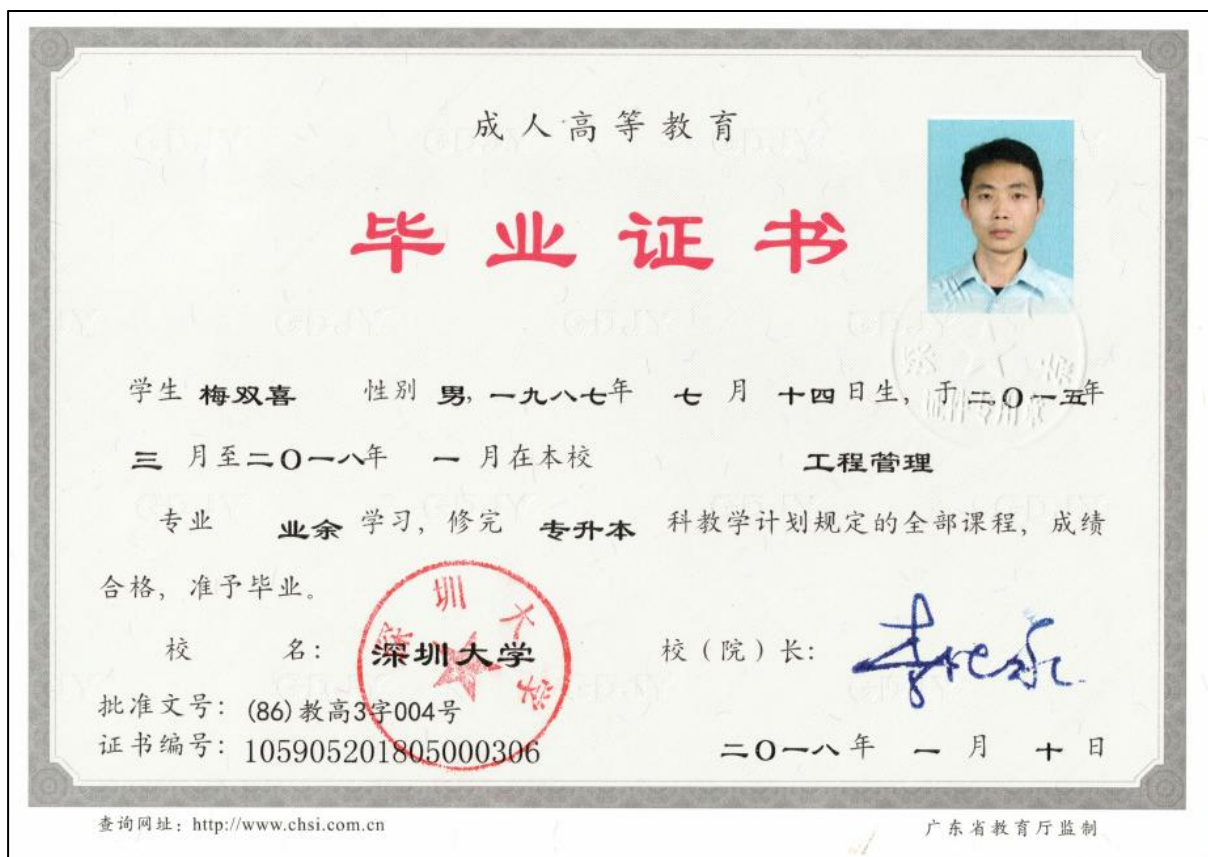 成人高等教育
毕业证书
学生 梅双喜 性别 男, 一九八七年 七 月 十四日生, 于二〇一五年
三 月至二〇一八年 一 月在本校 工程管理
专业 业余 学习, 修完 专升本 科教学计划规定的全部课程, 成绩
合格, 准予毕业。
校 名: 深圳大学 校(院)长:
深圳大学
批准文号: (86)教高3字004号
证书编号: 105905201805000306 二〇一八年 一 月 十 日
查询网址: http://www.chsi.com.cn 广东省教育厅监制